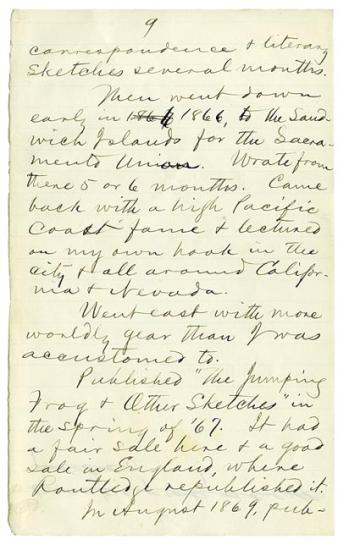 9
correspondence & literary
sketches several months.
Then went down
early in 1866, to the Sand-
wich Islands for the Sacra-
mento Union. Wrote from
there 5 or 6 months. Came
back with a high Pacific
Coast fame & lectured
on my own hook in the
city & all around Califor-
nia & Nevada.
Went east with more
worldly gear than I was
accustomed to.
Published "the Jumping
Frog & Other Sketches" in
the spring of '67. It had
a fair sale here & a good
sale in England, where
Routledge republished it.
In August 1869, pub-